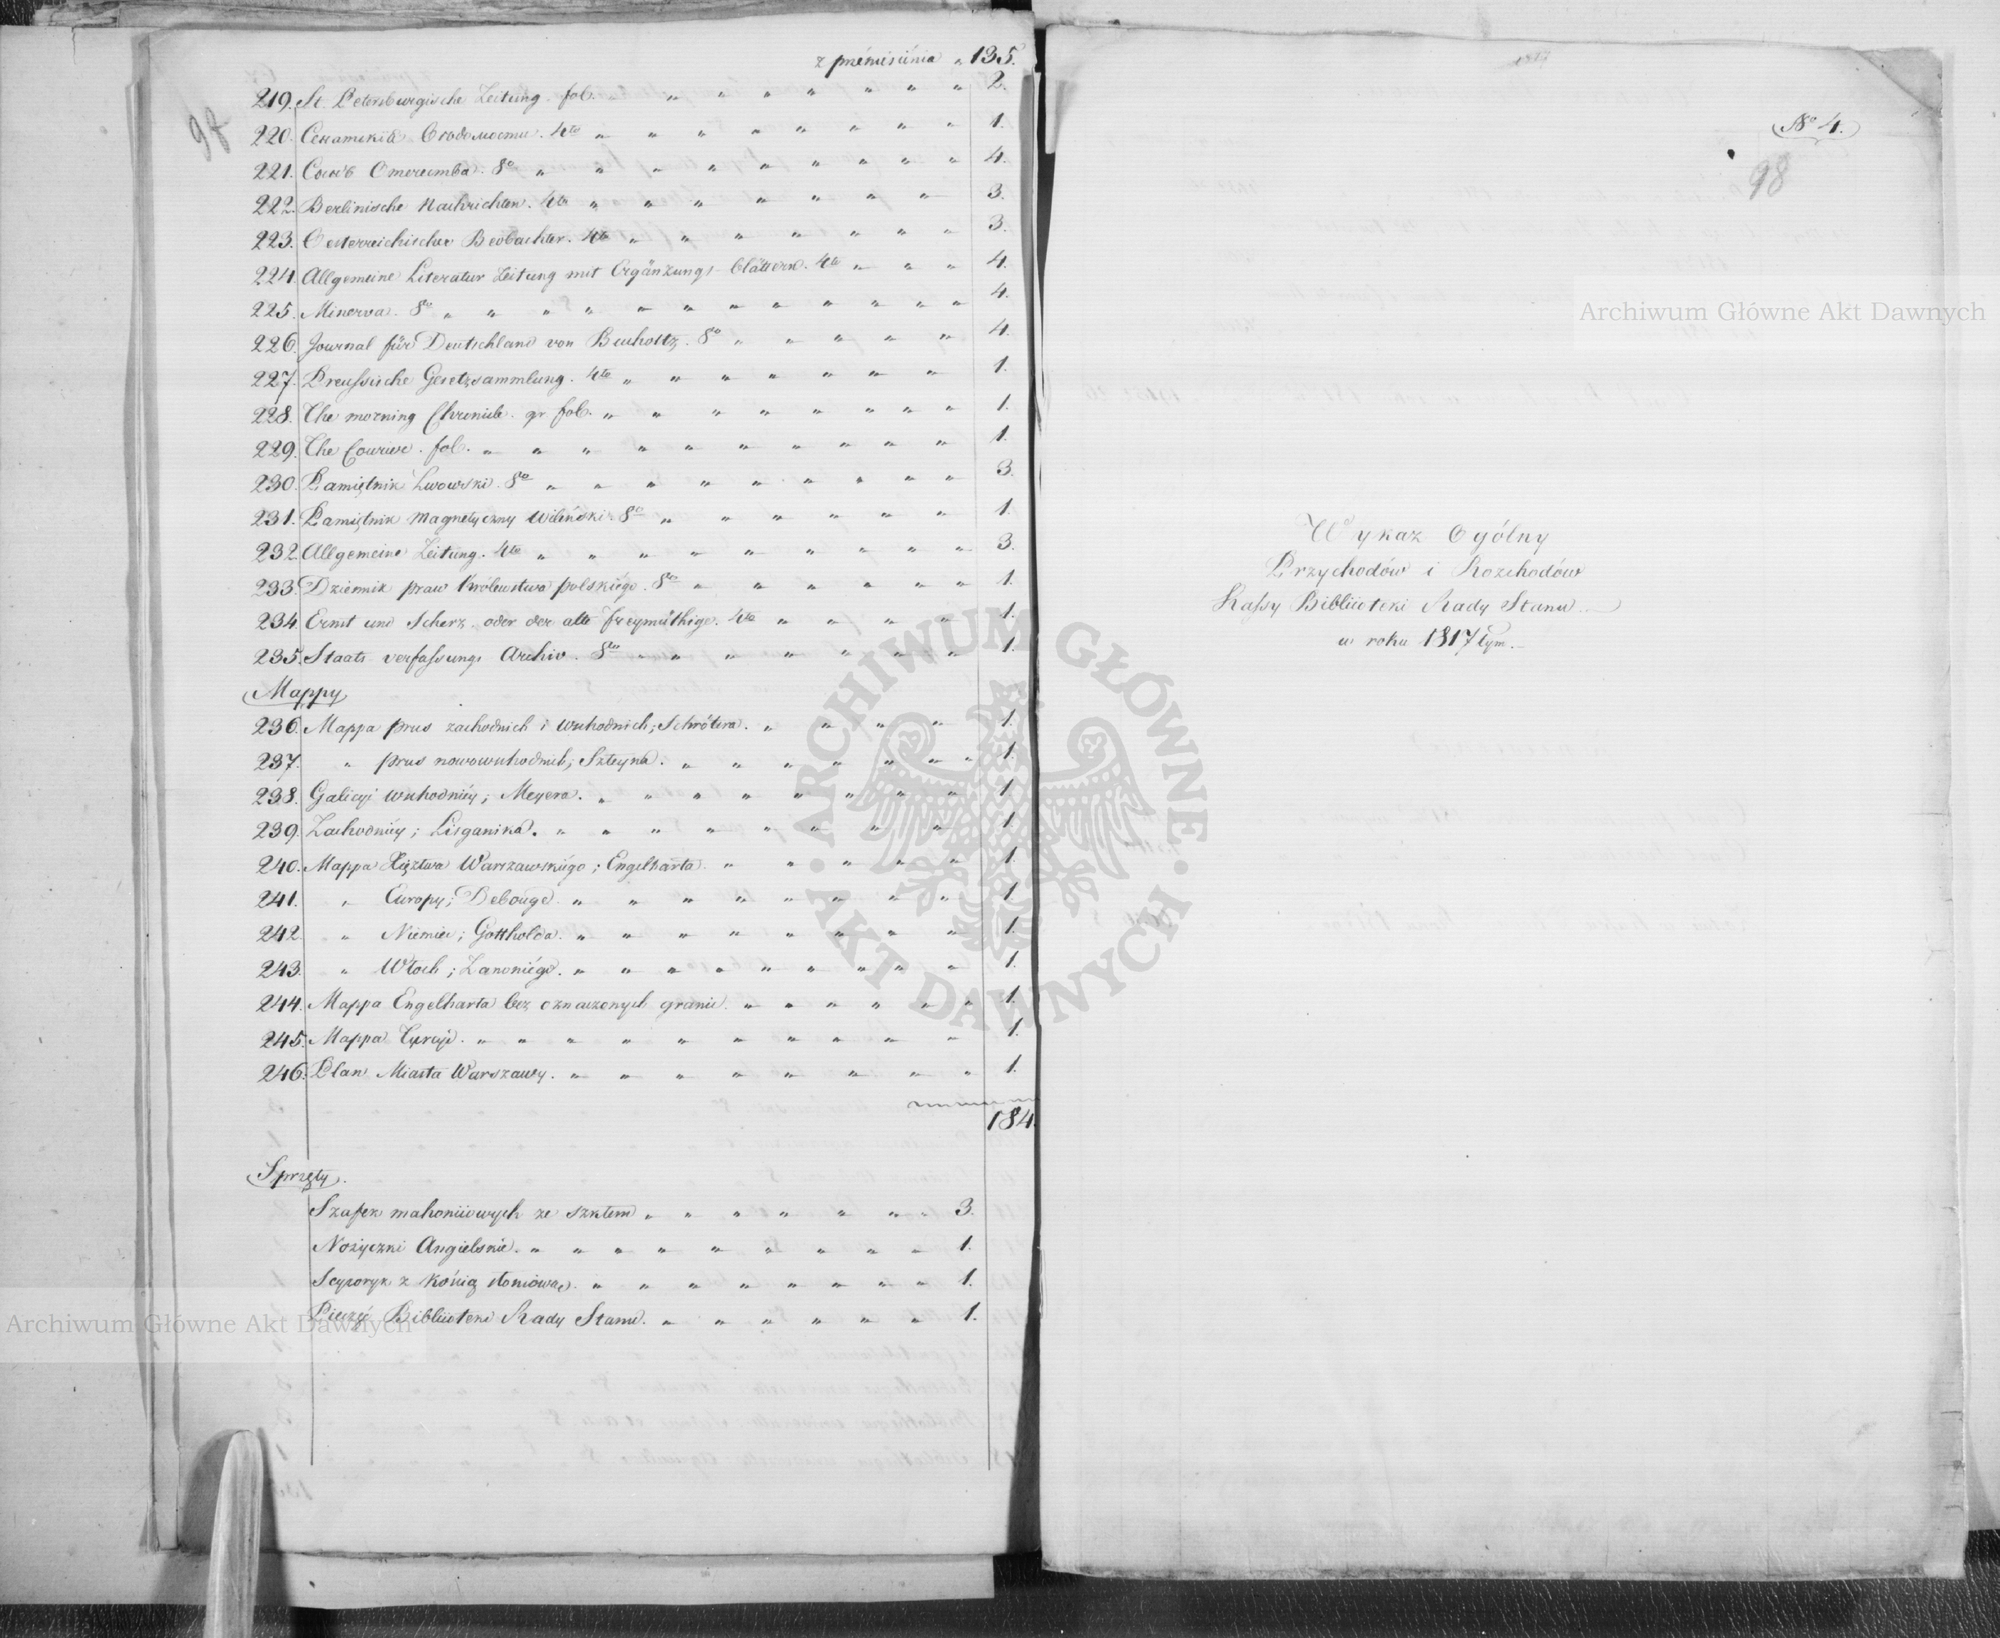 z przeniesienia " 135.
97
219. St. Petersburgische Zeitung. fol. 2.
220. 4to 1.
221. Сынъ Отечества. 8o 4.
222. Berlinische Nachrichten. 4to 3.
223. Oesterreichischer Beobachter. 4to 3.
224. Allgemeine Literatur Zeitung mit Ergänzungs-blättern. 4to 4.
225. Minerva. 8o 4.
226. Journal für Deutschland von Buchottz. 8o 4.
227. Preussische Gesetzsammlung. 4to 1.
228. The morning Chronicle. gr. fol. 1.
229. The Courier. fol. 1.
230. Pamiętnik Lwowski. 8o 3.
231. Pamiętnik magnetyczny Wileński 8o 1.
232. Allgemeine Zeitung. 4to 3.
233. Dziennik praw Królewstwa polskiégo. 8vo 1.
234. Ernst und Scherz oder der alte freymüthige. 4to 1.
235. Staats-verfassungs Archiv. 8vo 1.
Mappy
236. Mappa prus zachodnich i wschodnich; Schrötera. 1.
237. " prus nowowschodnich; Szteyna. 1.
238. Galicyi wschodniéy; Meyera. 1
239. Zachodniéy; Lisganika. 1.
240. Mappa Xięztwa Warszawskiégo; Engelharta. 1.
241. " Europy; Debouge. 1.
242. " Niemiec; Gottholda. 1.
243. " Włoch; Zanoniégo. 1.
244. Mappa Engelharta bez oznaczonych granic. 1.
245. Mappa Turcyi. 1.
246. Plan Miasta Warszawy. 1.
184.
Sprzęty.
Szafek mahoniiowych ze szkłem 3.
Nożyczki Angielskie. 1.
Scyzoryk z kością słoniową. 1.
Pieczęć Biblioteki Rady Stanu. 1.
No 4.
98
Wykaz Ogólny
Przychodów i Rozchodów
Kassy Biblioteki Rady Stanu
w roku 1817tym.
Archiwum Główne Akt Dawnych
Archiwum Główne Akt Dawnych
ARCHIWUM GŁÓWNE AKT DAWNYCH